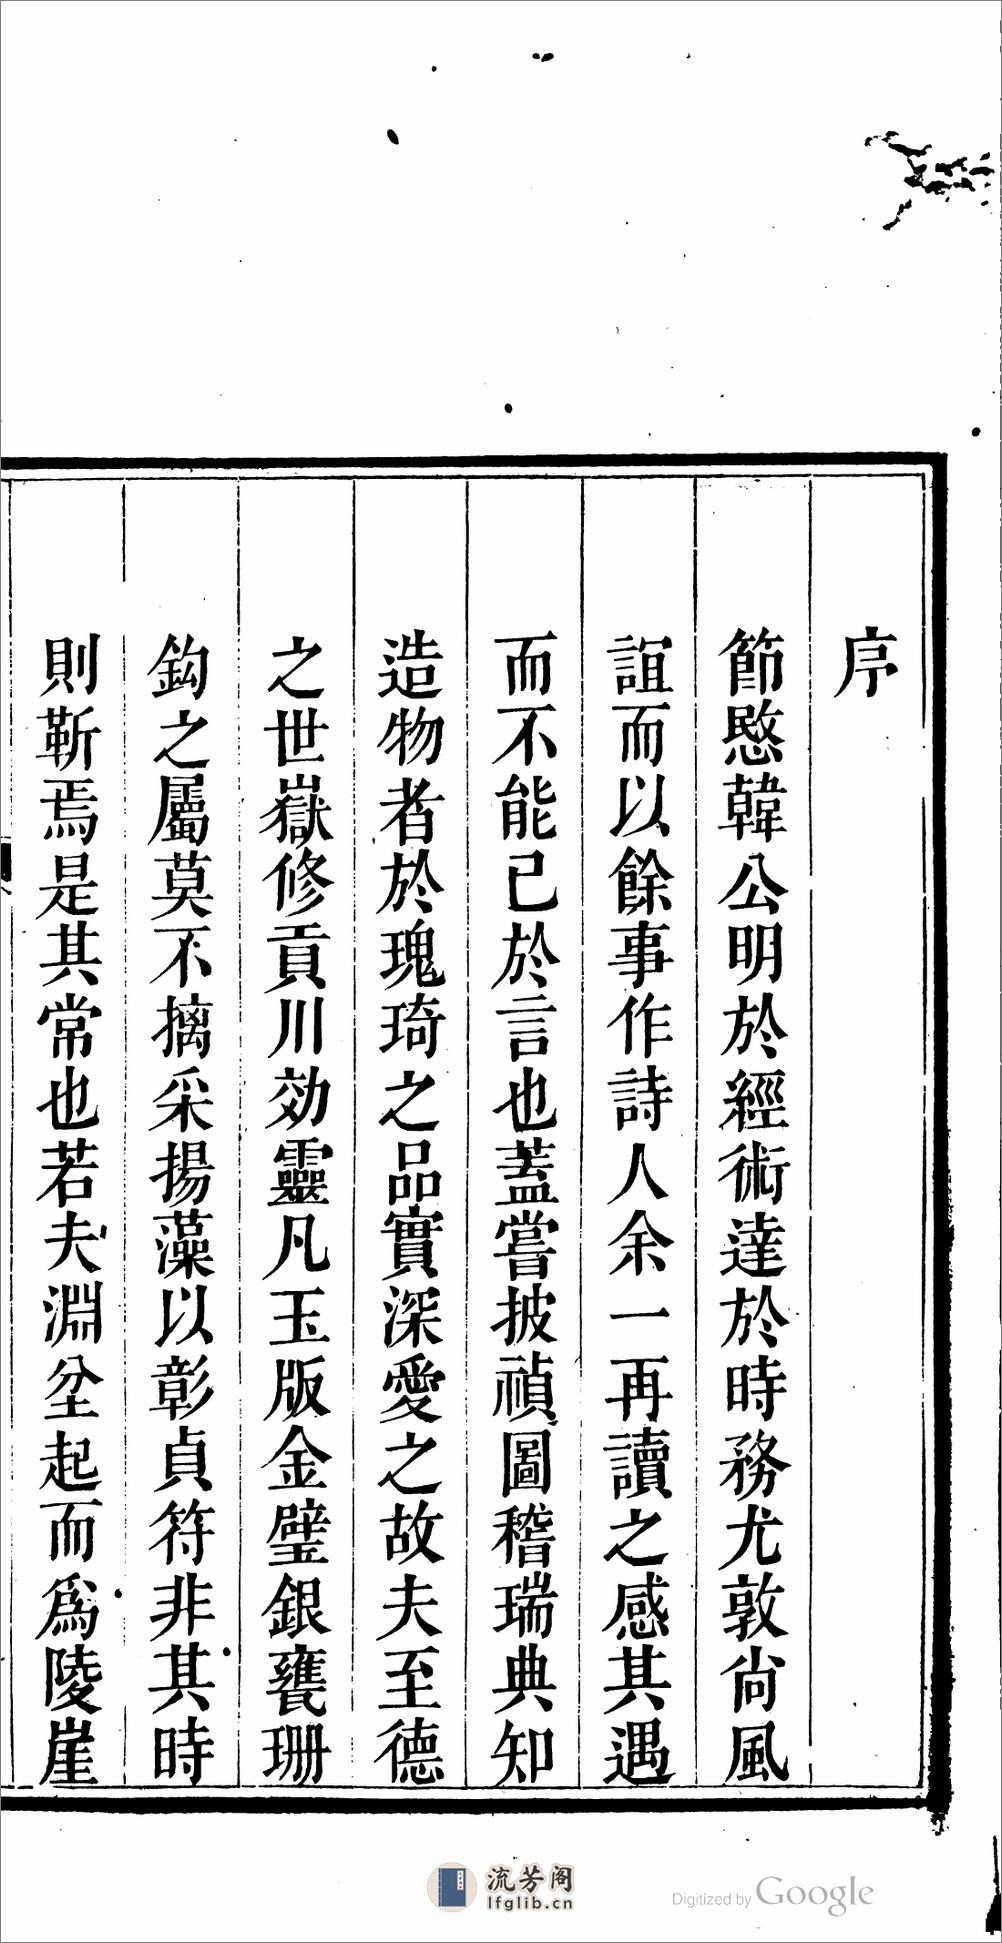 序
節愍韓公明於經術達於時務尤敦尙風
誼而以餘事作詩人余一再讀之感其遇
而不能已於言也蓋嘗披禎圖稽瑞典知
造物者於瑰琦之品實深愛之故夫至德
之世嶽修貢川効靈凡玉版金璧銀甕珊
鈎之屬莫不摛采揚藻以彰貞符非其時
則靳焉是其常也若夫淵坌起而爲陵崖
流芳阁
lfglib.cn
Digitized by Google